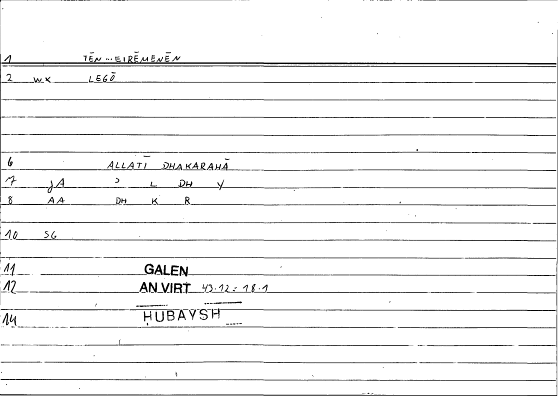 1 TĒN...EIRĒMENĒN
2 WK LEGŌ
6 ALLATĪ DHAKARAHĀ
7 JA ʾ L DH Y
8 AA DH K R
10 SG
11 GALEN
12 AN VIRT 43.12 = 18.1
14 ḤUBAYSH